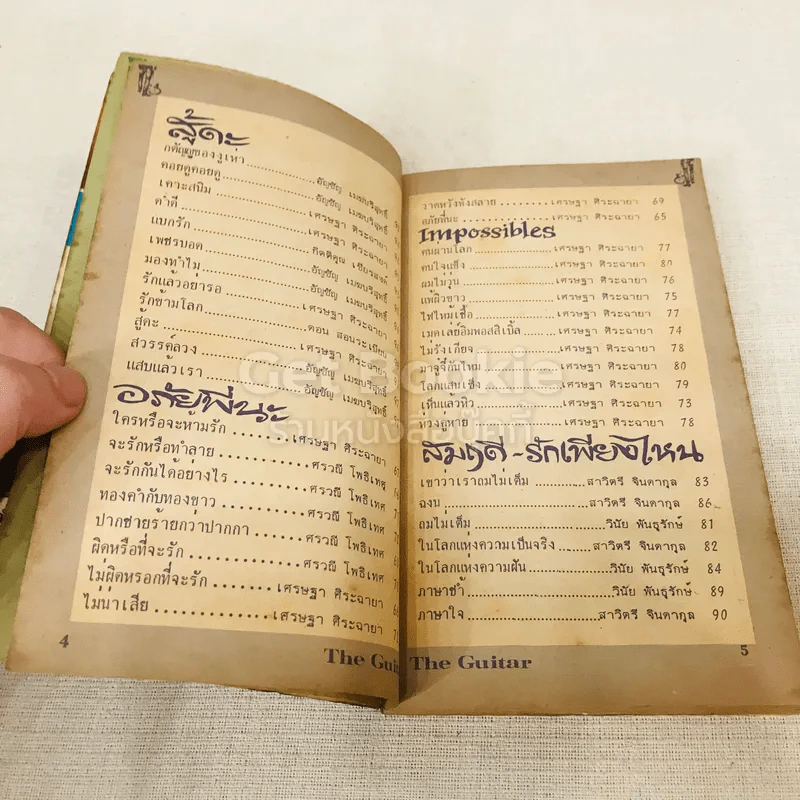 สู้ดะ
กตัญญูของงูเห่า
คอยดูคอยดู ............ อัญชัญ เมฆบริสุทธิ์
เคาะสนิม ............ อัญชัญ เมฆบริสุทธิ์
คำดี ............ เศรษฐา ศิระฉายา
แบกรัก ............ เศรษฐา ศิระฉายา
เพชรบอด ............ กิตติคุณ เชียรสงค์
มองทำไม ............ อัญชัญ เมฆบริสุทธิ์
รักแล้วอย่ารอ ............ อัญชัญ เมฆบริสุทธิ์
รักข้ามโลก ............ เศรษฐา ศิระฉายา
สู้ดะ ............ ดอน สอนระเบียบ
สวรรค์ลวง ............ เศรษฐา ศิระฉายา
แสบแล้วเรา ............ อัญชัญ เมฆบริสุทธิ์
อัญชัญ เมฆบริสุทธิ์
อภัยพี่นะ
ใครหรือจะห้ามรัก ............ เศรษฐา ศิระฉายา
จะรักหรือทำลาย ............ ศรวณี โพธิเทศ
จะรักกันได้อย่างไร ............ ศรวณี โพธิเทศ
ทองคำกับทองขาว ............ ศรวณี โพธิเทศ
ปากชายร้ายกว่าปากกา ............ ศรวณี โพธิเทศ
ผิดหรือที่จะรัก ............ ศรวณี โพธิเทศ
ไม่ผิดหรอกที่จะรัก ............ เศรษฐา ศิระฉายา
ไม่น่าเสีย ............ เศรษฐา ศิระฉายา
4
The Gui
วาดหวังพังสลาย ........ เศรษฐา ศิระฉายา 69
อภัยพี่นะ ............ เศรษฐา ศิระฉายา 65
Impossibles
คนผ่านโลก ............ เศรษฐา ศิระฉายา 77
คนใจแข็ง ............ เศรษฐา ศิระฉายา 80
ผมไม่วุ่น ............ เศรษฐา ศิระฉายา 76
แพ้ผิวขาว ............ เศรษฐา ศิระฉายา 75
ไฟไหม้เชื้อ ............ เศรษฐา ศิระฉายา 77
เมดเล่ย์อิมพอสสิเบิ้ล ............ เศรษฐา ศิระฉายา 74
ไม่รังเกียจ ............ เศรษฐา ศิระฉายา 78
มาจู๋จี๋กันไหม ............ เศรษฐา ศิระฉายา 80
โลกแสนเซ็ง ............ เศรษฐา ศิระฉายา 79
เห็นแล้วหิว ............ เศรษฐา ศิระฉายา 73
ห่วงคู่หาย ............ เศรษฐา ศิระฉายา 78
สมฤดี ~ รักเพียงไหน
เขาว่าเราถมไม่เต็ม .... สาวิตรี จินดากูล 83
ฉงบ ............ สาวิตรี จินดากูล 86
ถมไม่เต็ม ............ วินัย พันธุรักษ์ 81
ในโลกแห่งความเป็นจริง .... สาวิตรี จินดากูล 82
ในโลกแห่งความฝัน ........ วินัย พันธุรักษ์ 84
ภาษาช้ำ ............ วินัย พันธุรักษ์ 89
ภาษาใจ ............ สาวิตรี จินดากูล 90
5
The Guitar
Get Bookie
รวมหนังสือบุ๊คกี้